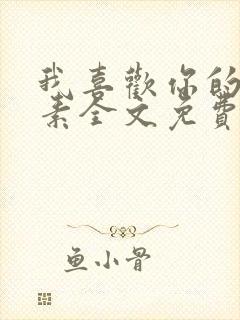 我喜歡你的
素全文免費
鱼小骨